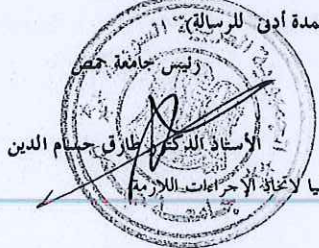 مدة أدنى للرسالة)
رئيس جامعة حمص
الأستاذ الدكتور طارق حسام الدين
يا لاتخاذ الإجراءات اللازمة